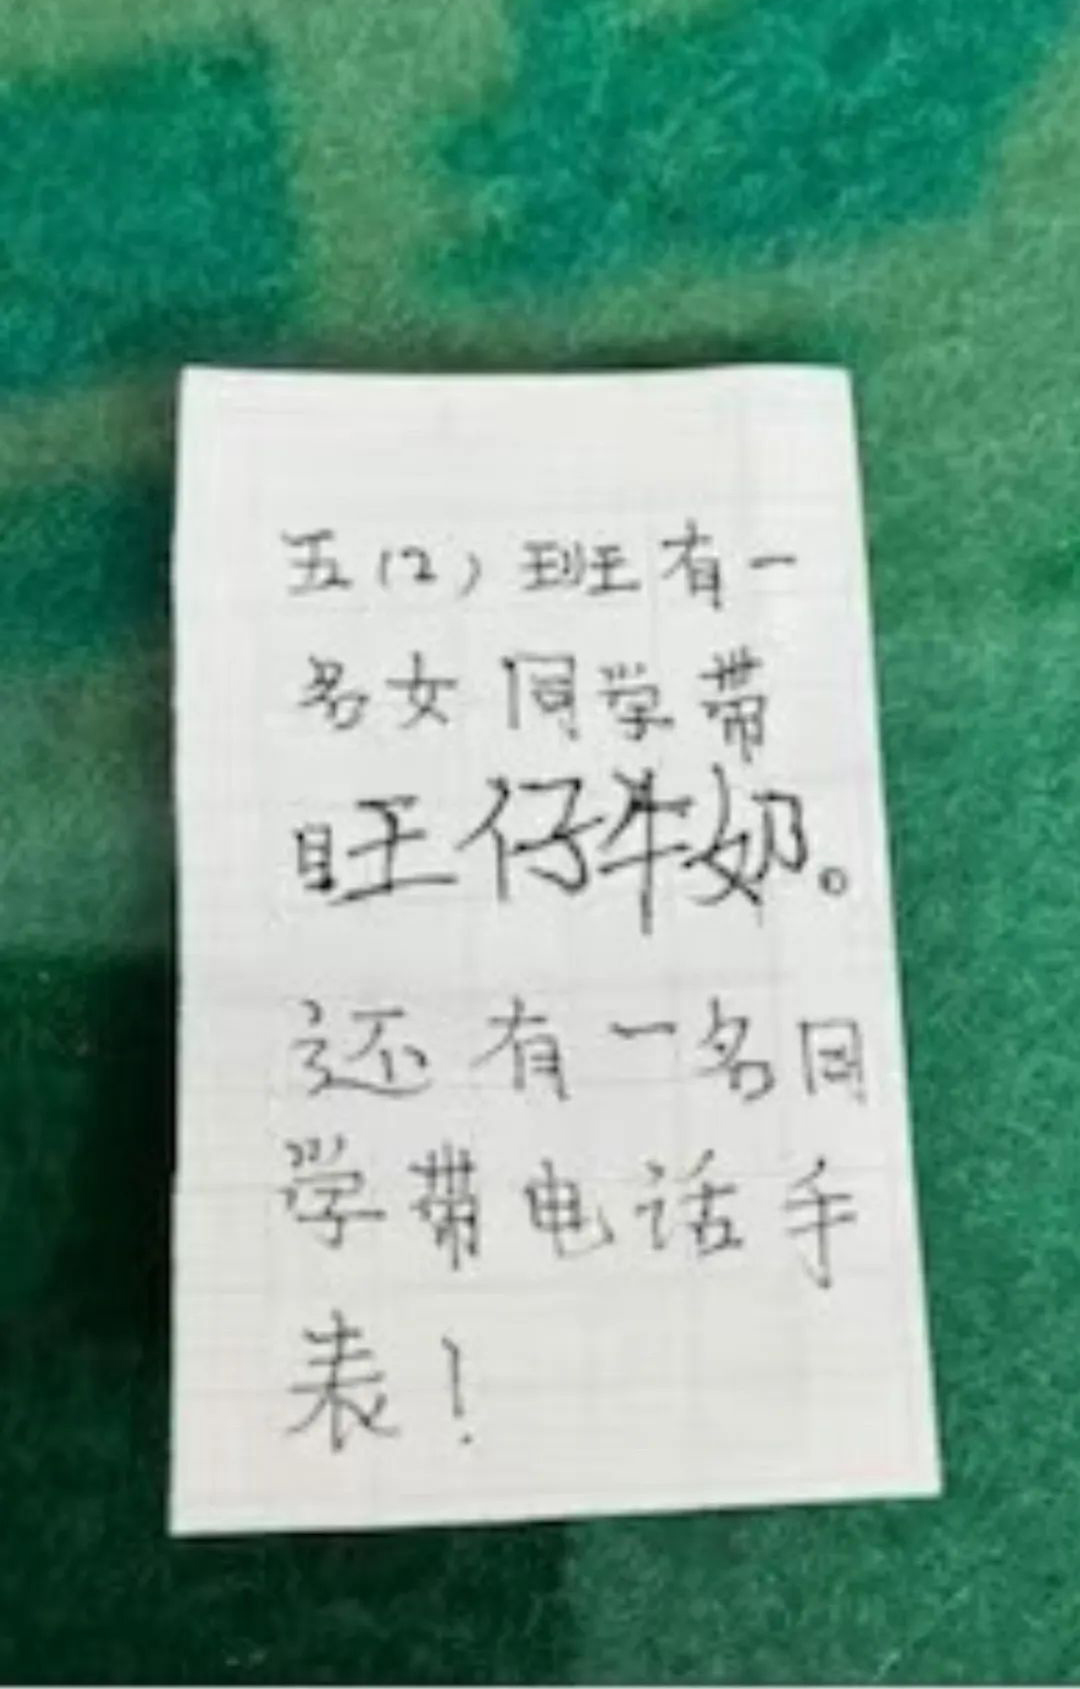 五(2)班有一
名女同学带
旺仔牛奶。
还有一名同
学带电话手
表!